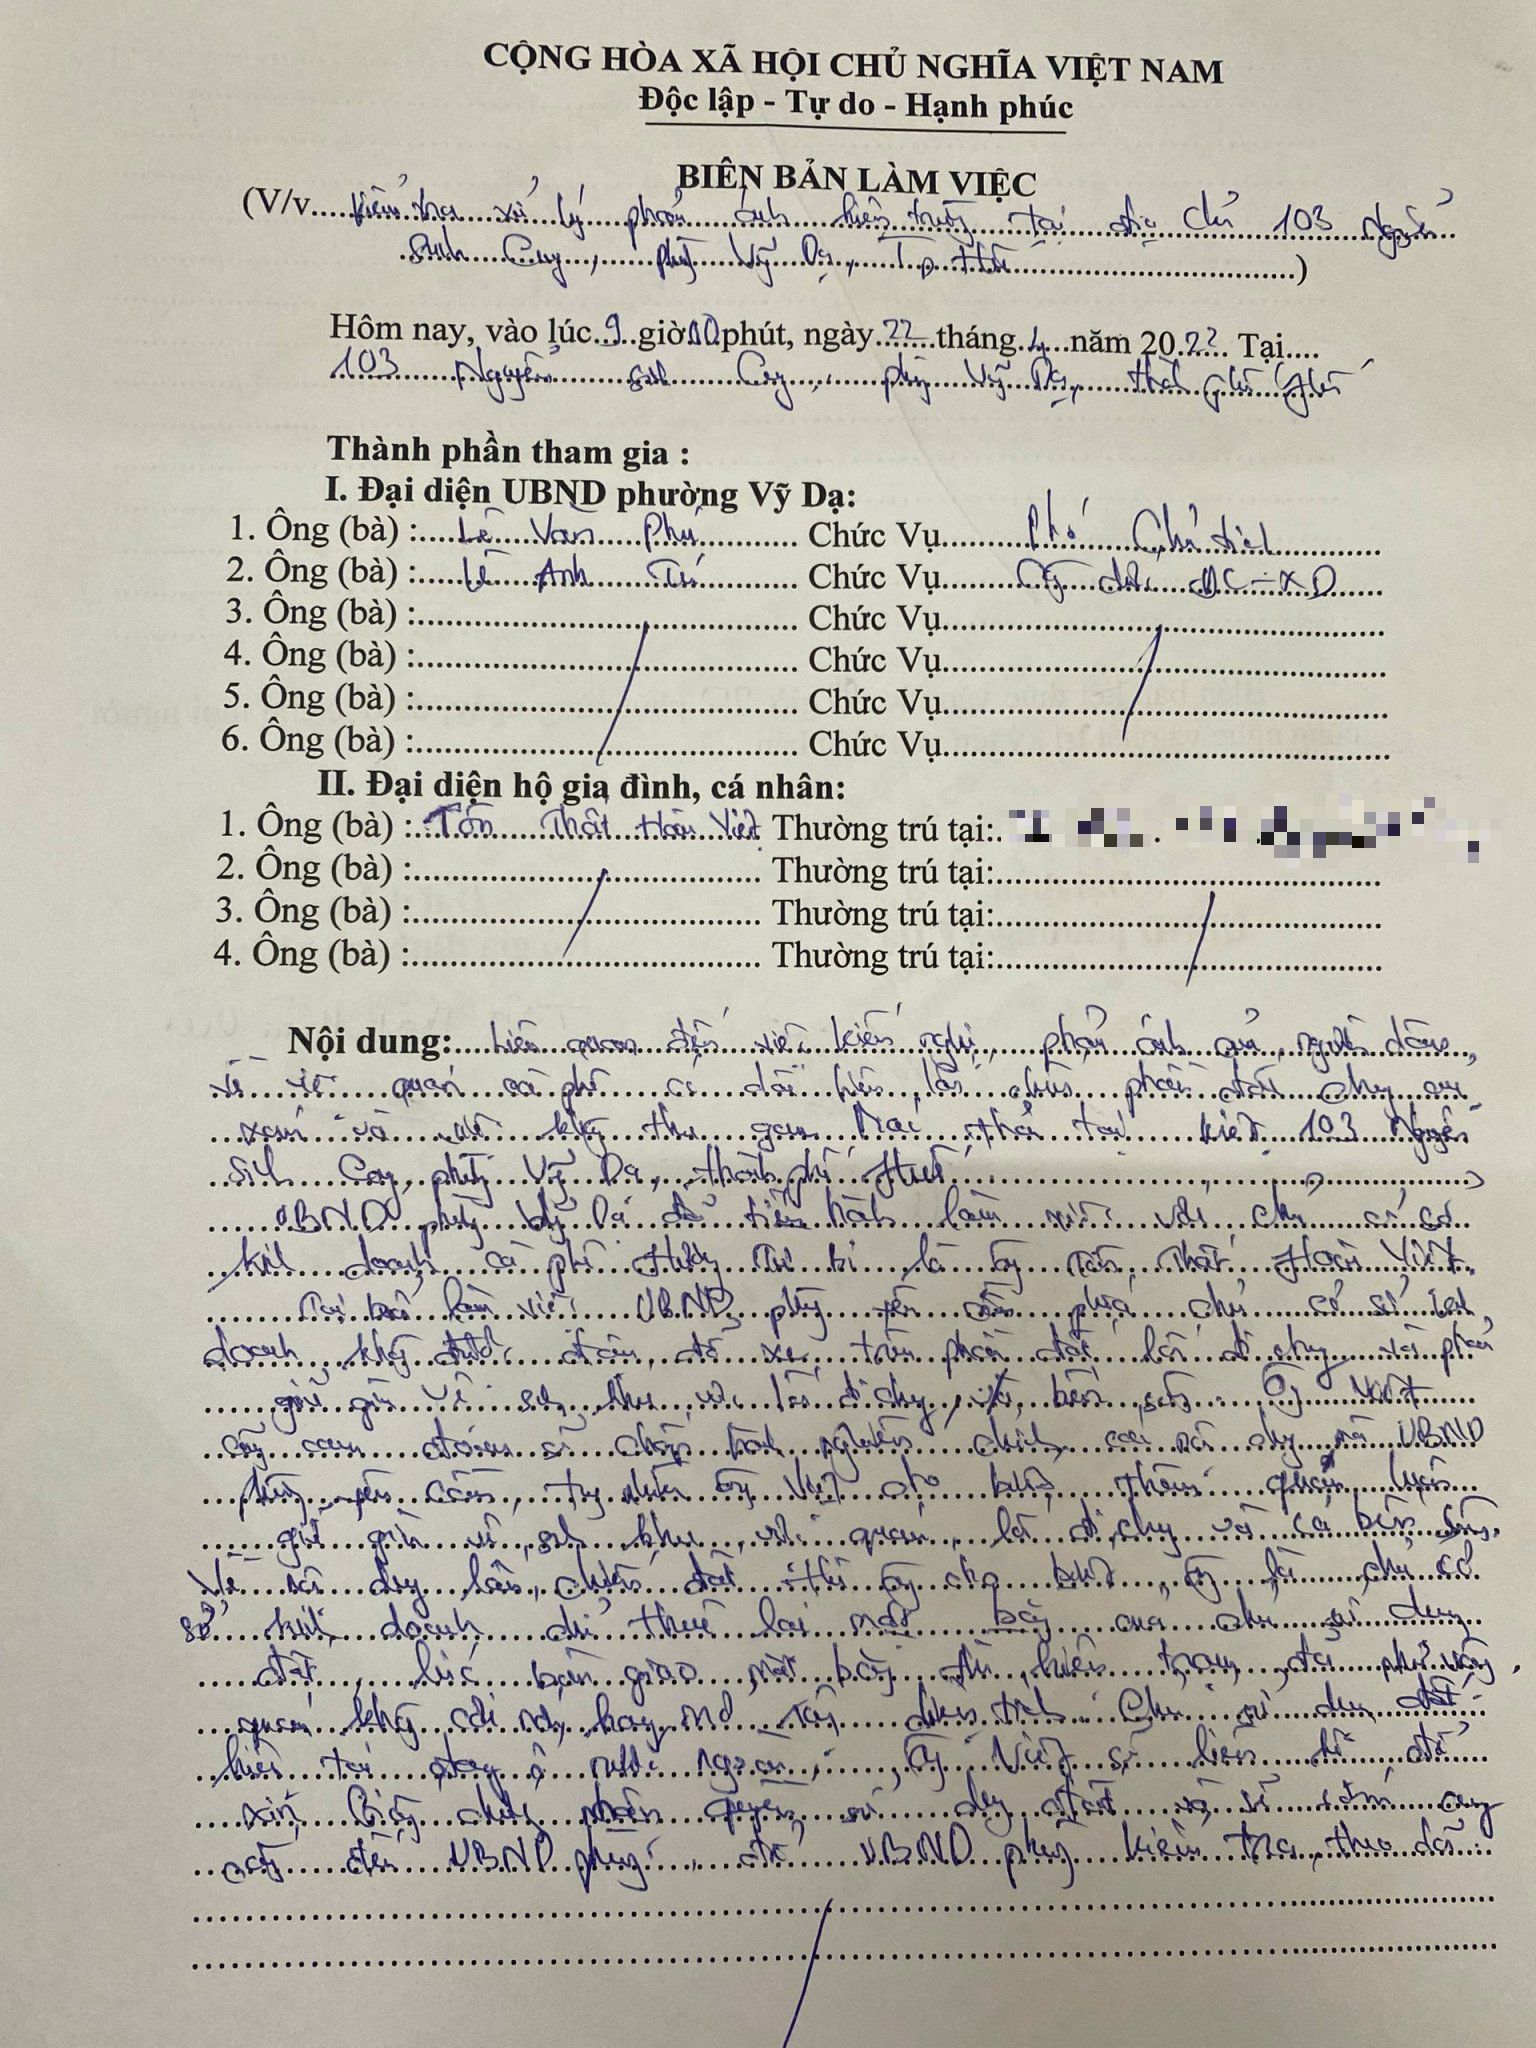 CỘNG HÒA XÃ HỘI CHỦ NGHĨA VIỆT NAM
Độc lập - Tự do - Hạnh phúc
BIÊN BẢN LÀM VIỆC
(V/v kiểm tra xử lý phản ánh hiện trường tại địa chỉ 103 Nguyễn
Sinh Cung, phường Vỹ Dạ, Tp Huế)
Hôm nay, vào lúc 9 giờ 00 phút, ngày 22 tháng 4 năm 2022 Tại
103 Nguyễn Sinh Cung, phường Vỹ Dạ, thành phố Huế
Thành phần tham gia :
I. Đại diện UBND phường Vỹ Dạ:
1. Ông (bà) : Lê Văn Phú Chức Vụ Phó Chủ tịch
2. Ông (bà) : Lê Anh Tú Chức Vụ ĐC-XD
3. Ông (bà) : Chức Vụ
4. Ông (bà) : Chức Vụ
5. Ông (bà) : Chức Vụ
6. Ông (bà) : Chức Vụ
II. Đại diện hộ gia đình, cá nhân:
1. Ông (bà) : Tôn Thất Hoài Việt Thường trú tại:
2. Ông (bà) : Thường trú tại:
3. Ông (bà) : Thường trú tại:
4. Ông (bà) : Thường trú tại:
Nội dung: Liên quan đến việc kiến nghị, phản ánh của người dân,
về việc quán cà phê có dấu hiệu lấn chiếm phần đất
và việc không thu gom rác thải tại kiệt 103 Nguyễn
Sinh Cung, phường Vỹ Dạ, thành phố Huế
UBND phường Vỹ Dạ đã tiến hành làm việc với chủ cơ sở
kinh doanh cà phê là ông Tôn Thất Hoài Việt.
Tại buổi làm việc UBND phường yêu cầu phía chủ cơ sở kinh
doanh không được để xe trên phần đất lối đi chung và phải
giữ gìn vệ sinh khu vực lối đi chung, bến sông. Ông Việt
cũng cam đoan sẽ chấp hành nghiêm chỉnh các nội dung mà UBND
phường yêu cầu, tuy nhiên ông Việt cho biết thêm quán luôn
giữ gìn vệ sinh khu vực quán, lối đi chung và cả bến sông.
Về nội dung lấn chiếm đất thì ông cho biết, ông là chủ cơ
sở kinh doanh chỉ thuê lại mặt bằng của chủ sử dụng
đất, lúc bàn giao mặt bằng thì hiện trạng đã như vậy,
quán không cơi nới hay mở rộng diện tích. Chủ sử dụng đất
hiện tại đang ở nước ngoài, ông Việt sẽ liên hệ để
xin Giấy chứng nhận quyền sử dụng đất và sẽ sớm cung
cấp đến UBND phường, để UBND phường kiểm tra, theo dõi.